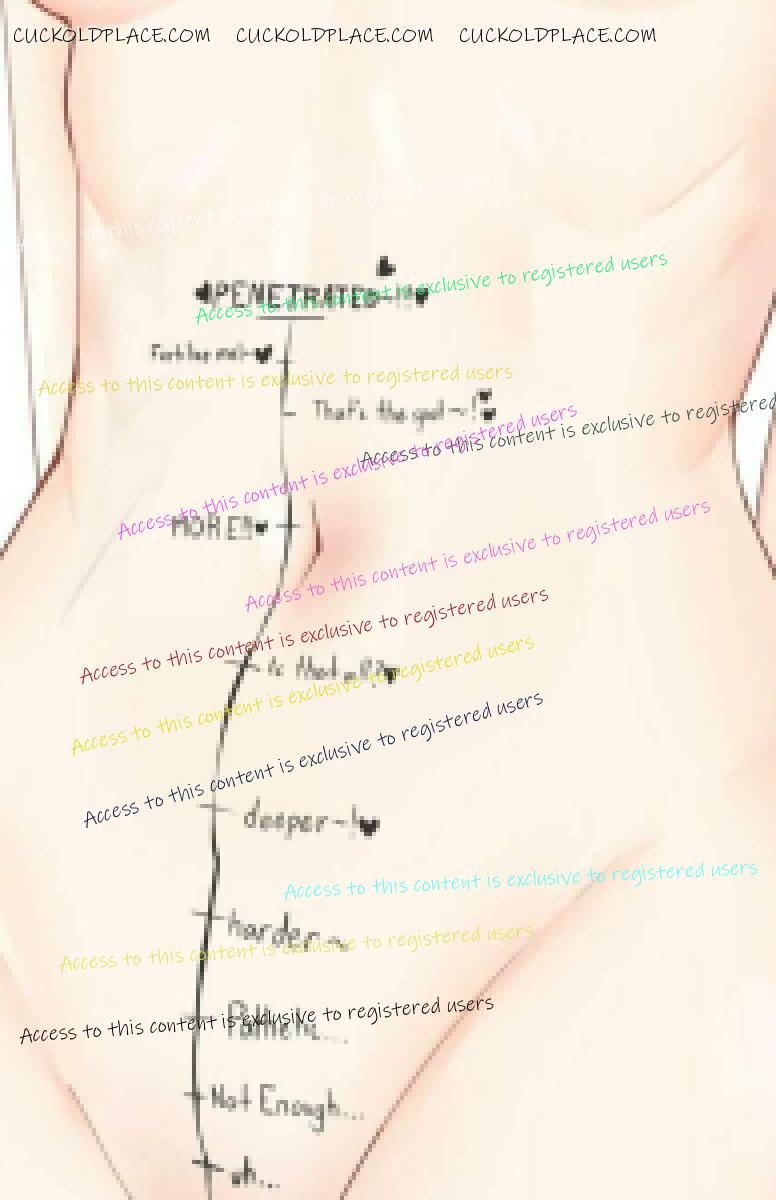 CUCKOLDPLACE.COM CUCKOLDPLACE.COM CUCKOLDPLACE.COM
Access to this content is exclusive to registered users
Access to this content is exclusive to registered users
PENETRATED
Access to this content is exclusive to registered users
That's the goal~!
Access to this content is exclusive to registered
Access to this content is exclusive to registered users
MORE!!
Access to this content is exclusive to registered users
Access to this content is exclusive to registered users
is that all??
Access to this content is exclusive to registered users
Access to this content is exclusive to registered users
deeper~!
Access to this content is exclusive to registered users
harder~
Access to this content is exclusive to registered users
Pathetic...
Access to this content is exclusive to registered users
Not Enough...
oh...